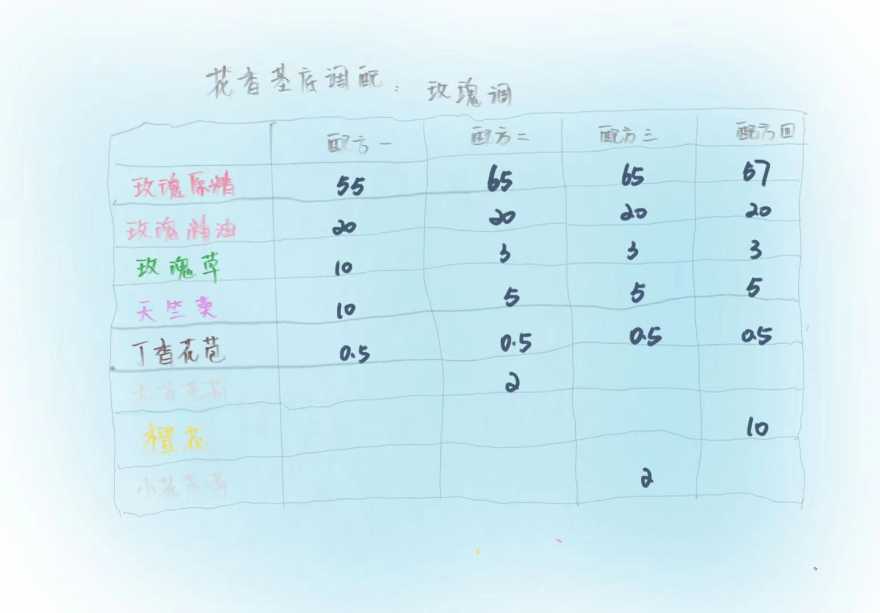 花香基底调配：玫瑰调
配方一 配方二 配方三 配方四
玫瑰原精 55 65 65 57
玫瑰精油 20 20 20 20
玫瑰草 10 3 3 3
天竺葵 10 5 5 5
丁香花苞 0.5 0.5 0.5 0.5
2
橙花 10
小花茉莉 2